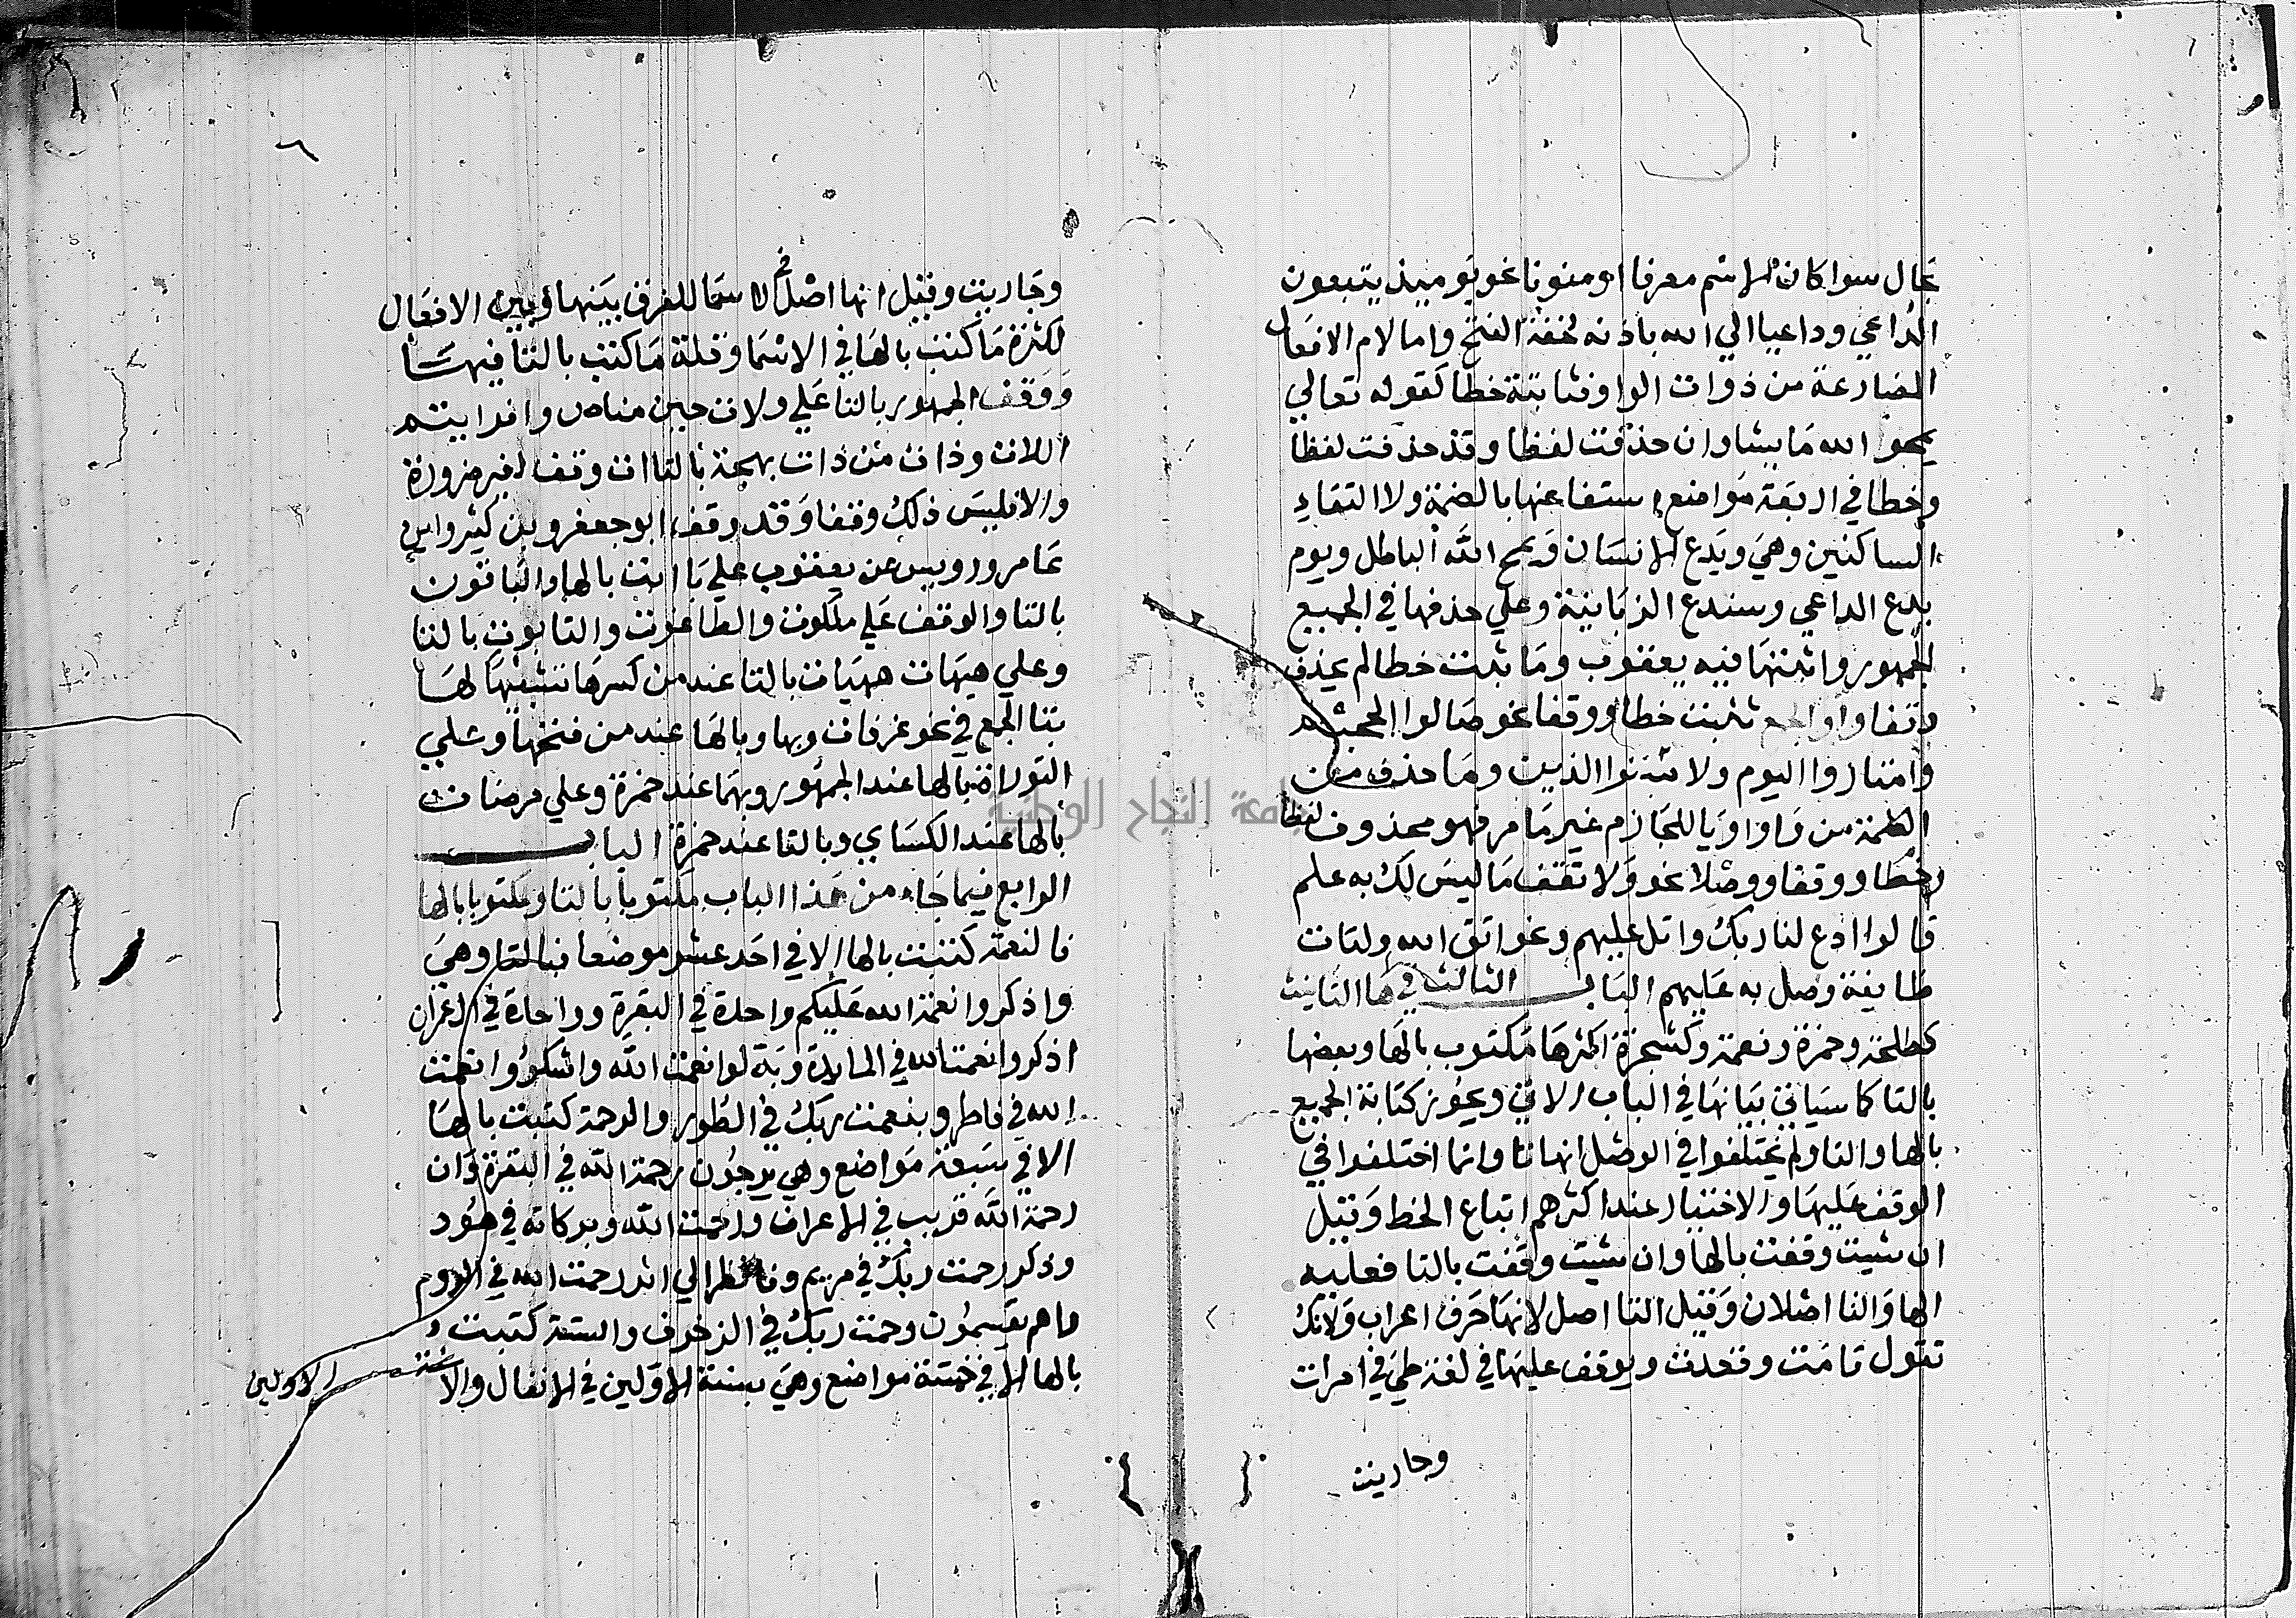 بحال سوا كان الاسم معرفا او منونا نحو يوميذ يتبعون
الداعي وداعيا الي الله باذنه لخفة الفتح واما لام الافعال
المضارعة من ذوات الواو فثابتة خطا كقوله تعالي
يمحوا الله ما يشا وان حذفت لفظا وقد حذفت لفظا
وخطا في اربعة مواضع استغنا عنها بالضمة ولا التقاء
الساكنين وهي ويدع الانسان ويمح الله الباطل ويوم
يدع الداعي وسندع الزبانية وعلي حذفها في الجميع
الجمهور واثبتها فيه يعقوب وما ثبت خطا لم يحذف
وقفا واو الجمع تثبت خطا ووقفا نحو صالوا الجحيم
وامتازوا اليوم ولا تسبوا الذين وما حذف من
الكلمة من واو او يا للجازم غير ما مر فهو محذوف لفظا
وخطا ووقفا ووصلا نحو ولا تقف ما ليس لك به علم
قالوا ادع لنا ربك واتل عليهم ونحو اتق الله ولتات
طايفة وصل به عليهم الباب الثالث في ها التانيث
كطلحة وحمزة ونعمة وكشجرة اكثرها مكتوب بالها وبعضها
بالتا كما سياتي بيانها في الباب الاتي ويجوز كتابة الجميع
بالها والتا ولم يختلفوا في الوصل انها تا وانما اختلفوا في
الوقف عليها والاختيار عند اكثرهم اتباع الخط وقيل
ان شيت وقفت بالها وان شيت وقفت بالتا فعليه
الها والتا اصلان وقيل التا اصل لانها حرف اعراب ولانك
تقول قامت وقعدت ويوقف عليها في لغة طي في امرات
وجاريت
وجاريت وقيل انها اصل في الاسما للفرق بينها وبين الافعال
لكثرة ما كتب بالها في الاسما وقلة ما كتب بالتا فيها
ووقف الجمهور بالتا علي ولات حين مناص وافرايتم
اللات وذات من ذات بهجة بالتا ان وقف لغير ضرورة
والا فليس ذلك وقفا وقد وقف ابو جعفر وبن كثير وابن
عامر ورويس عن يعقوب علي يا ابت بالها والباقون
بالتا والوقف علي ملكوت والطاغوت والتابوت بالتا
وعلي هيهات هيهات بالتا عند من كسرها تشبيها لها
بتا الجمع في نحو غرفات وبها وبالها عند من فتحها وعلي
التوراة بالها عند الجمهور وبهما عند حمزة وعلي مرضات
بالها عند الكساي وبالتا عند حمزة الباب
الرابع فيما جاء من هذا الباب مكتوبا بالتا ومكتوبا بالها
فالنعمة كتبت بالها الا في احد عشر موضعا فبالتا وهي
واذكروا نعمة الله عليكم واحدة في البقرة وواحدة في ال عمران
اذكروا نعمت الله في المايدة وبدلوا نعمت الله واشكروا نعمت
الله في فاطر وبنعمت ربك في الطور والرحمة كتبت بالها
الا في سبعة مواضع وهي يرجون رحمة الله في البقرة وان
رحمة الله قريب في الاعراف ورحمت الله وبركاته في هود
وذكر رحمت ربك في مريم وفانظر الي اثر رحمت الله في الروم
واهم يقسمون رحمت ربك في الزخرف والسنة كتبت
بالها الا في خمسة مواضع وهي سنة الاولين في الانفال والا
الاولين
جامعة النجاح الوطنية